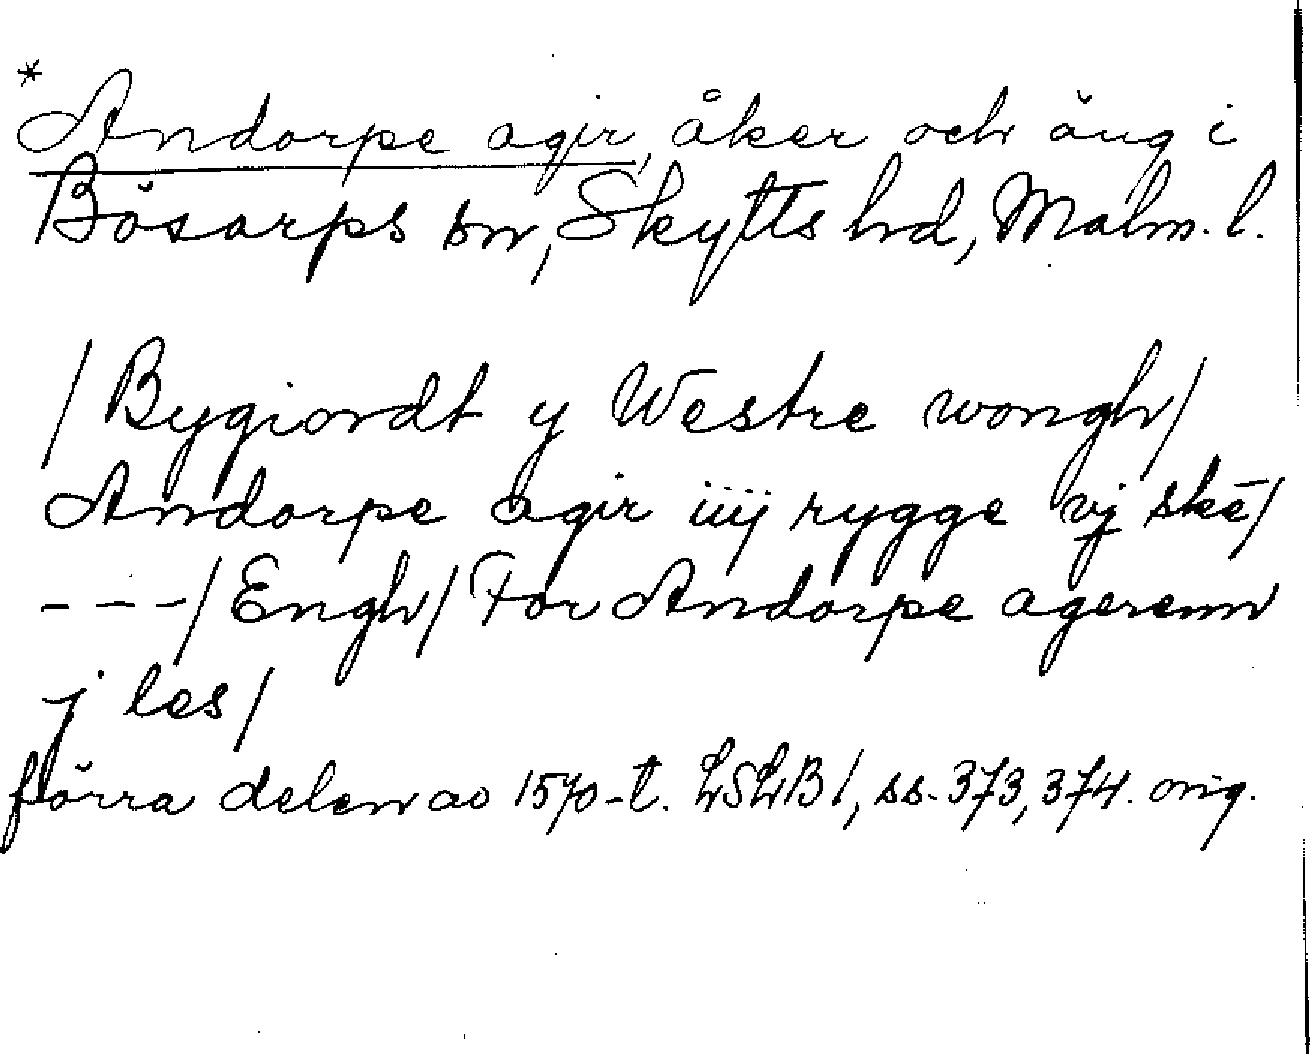 *
Andorpe agir, åker och äng i
Bösarps sn, Skytts hd, Malm. l.
/Bygiordt y Westre wongh/
Andorpe agir iiij rygge vj skē/
---/Engh/ For Andorpe agerenn
j les/
förra delen av 1570-t. LSLB 1, ss. 373, 374. orig.